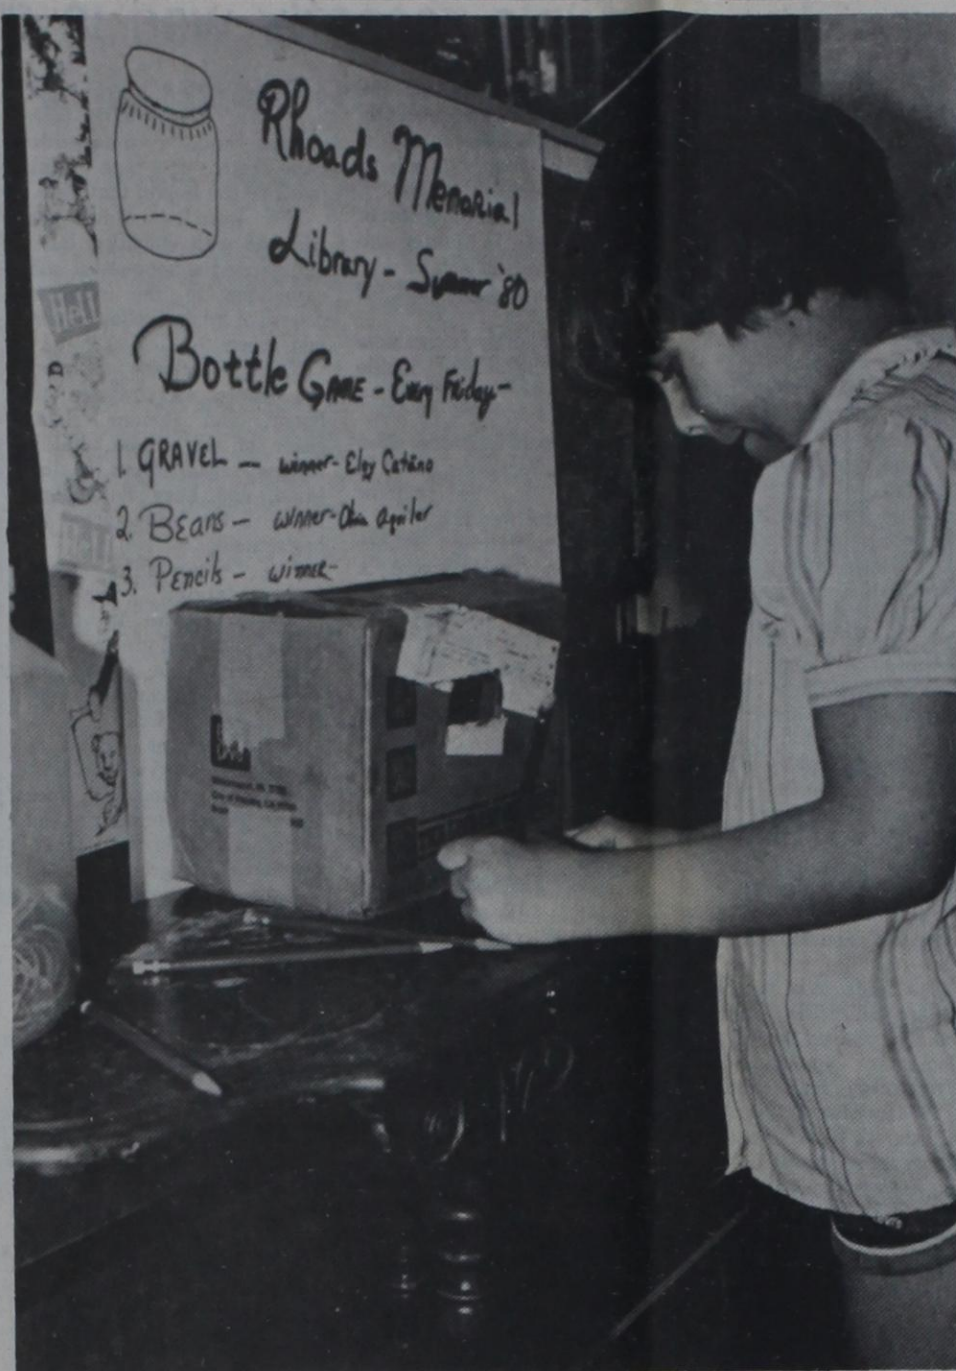 Rhoads Memorial
Library - Summer '80
Bottle GAME - Every Friday -
1. GRAVEL - winner - Eloy
2. Beans - winner - Aguilar
3. Pencils - winner -